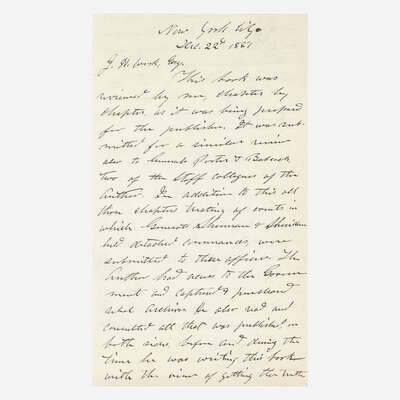 New York City
Dec. 22d 1881
This book was
reviewed by me, chapter by
chapter as it was being prepared
for the publisher. It was sub-
mitted for a similar review
also to Generals Porter & Babcock
two of the staff colleagues of the
Author. In addition to this all
those chapters treating of events in
which Generals Sherman & Sheridan
held detached commands, were
submitted to these officers. The
Author had access to the Govern
ment and captured & purchased
rebel Archives. He also read and
consulted all that was published, on
both sides, before and during the
time he was writing this book
with the view of getting the truth